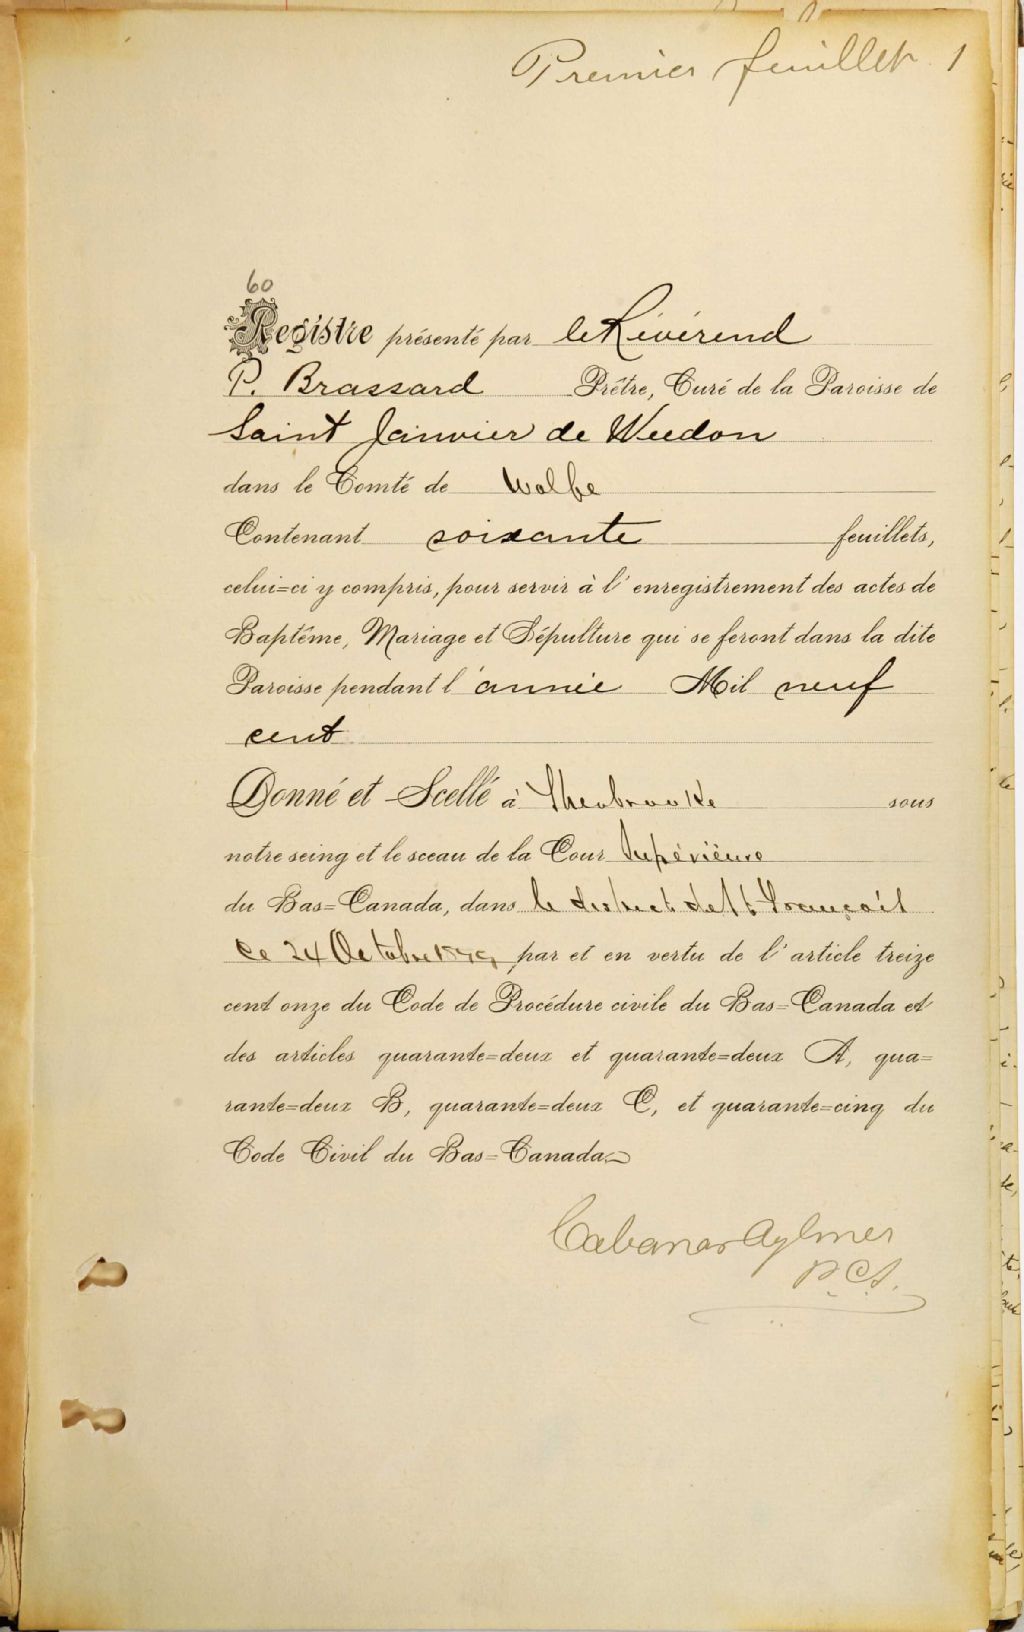 Premier feuillet 1
60
Registre présenté par le Révérend
P. Brassard Prêtre, Curé de la Paroisse de
Saint Janvier de Weedon
dans le Comté de Wolfe
Contenant soixante feuillets,
celui=ci y compris, pour servir à l'enregistrement des actes de
Baptême, Mariage et Sépulture qui se feront dans la dite
Paroisse pendant l'année Mil neuf
cent
Donné et Scellé à Sherbrooke sous
notre seing et le sceau de la Cour Supérieure
du Bas=Canada, dans le district de St François
ce 24 Octobre 1899 par et en vertu de l'article treize
cent onze du Code de Procédure civile du Bas=Canada et
des articles quarante=deux et quarante=deux A, qua=
rante=deux B, quarante=deux C, et quarante=cinq du
Code Civil du Bas=Canada.
Cabana & Aylmer
P.C.S.